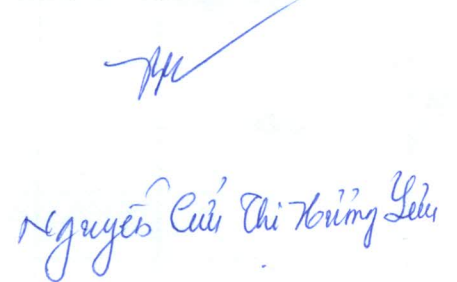 Nguyễn Cửu Thị Hường Yên